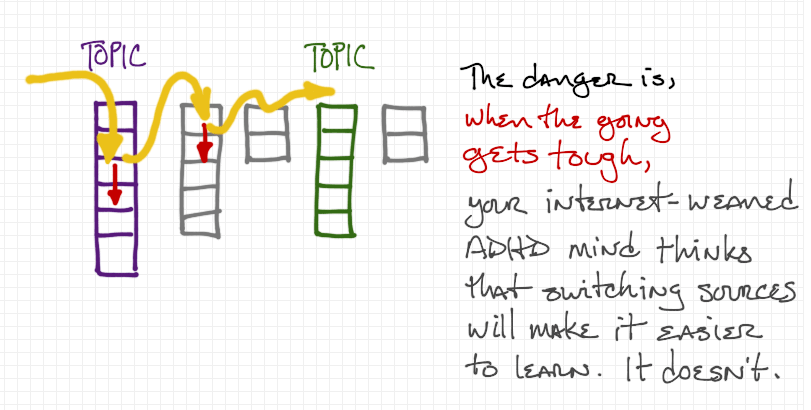 TOPIC
TOPIC
The danger is,
when the going
gets tough,
your internet-weaned
ADHD mind thinks
that switching sources
will make it easier
to learn. It doesn't.